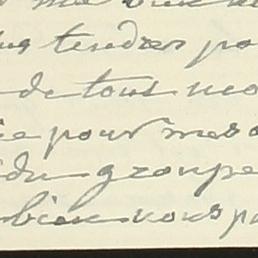 tendres po
de tous no
pour mes
du groupe
bien vous p